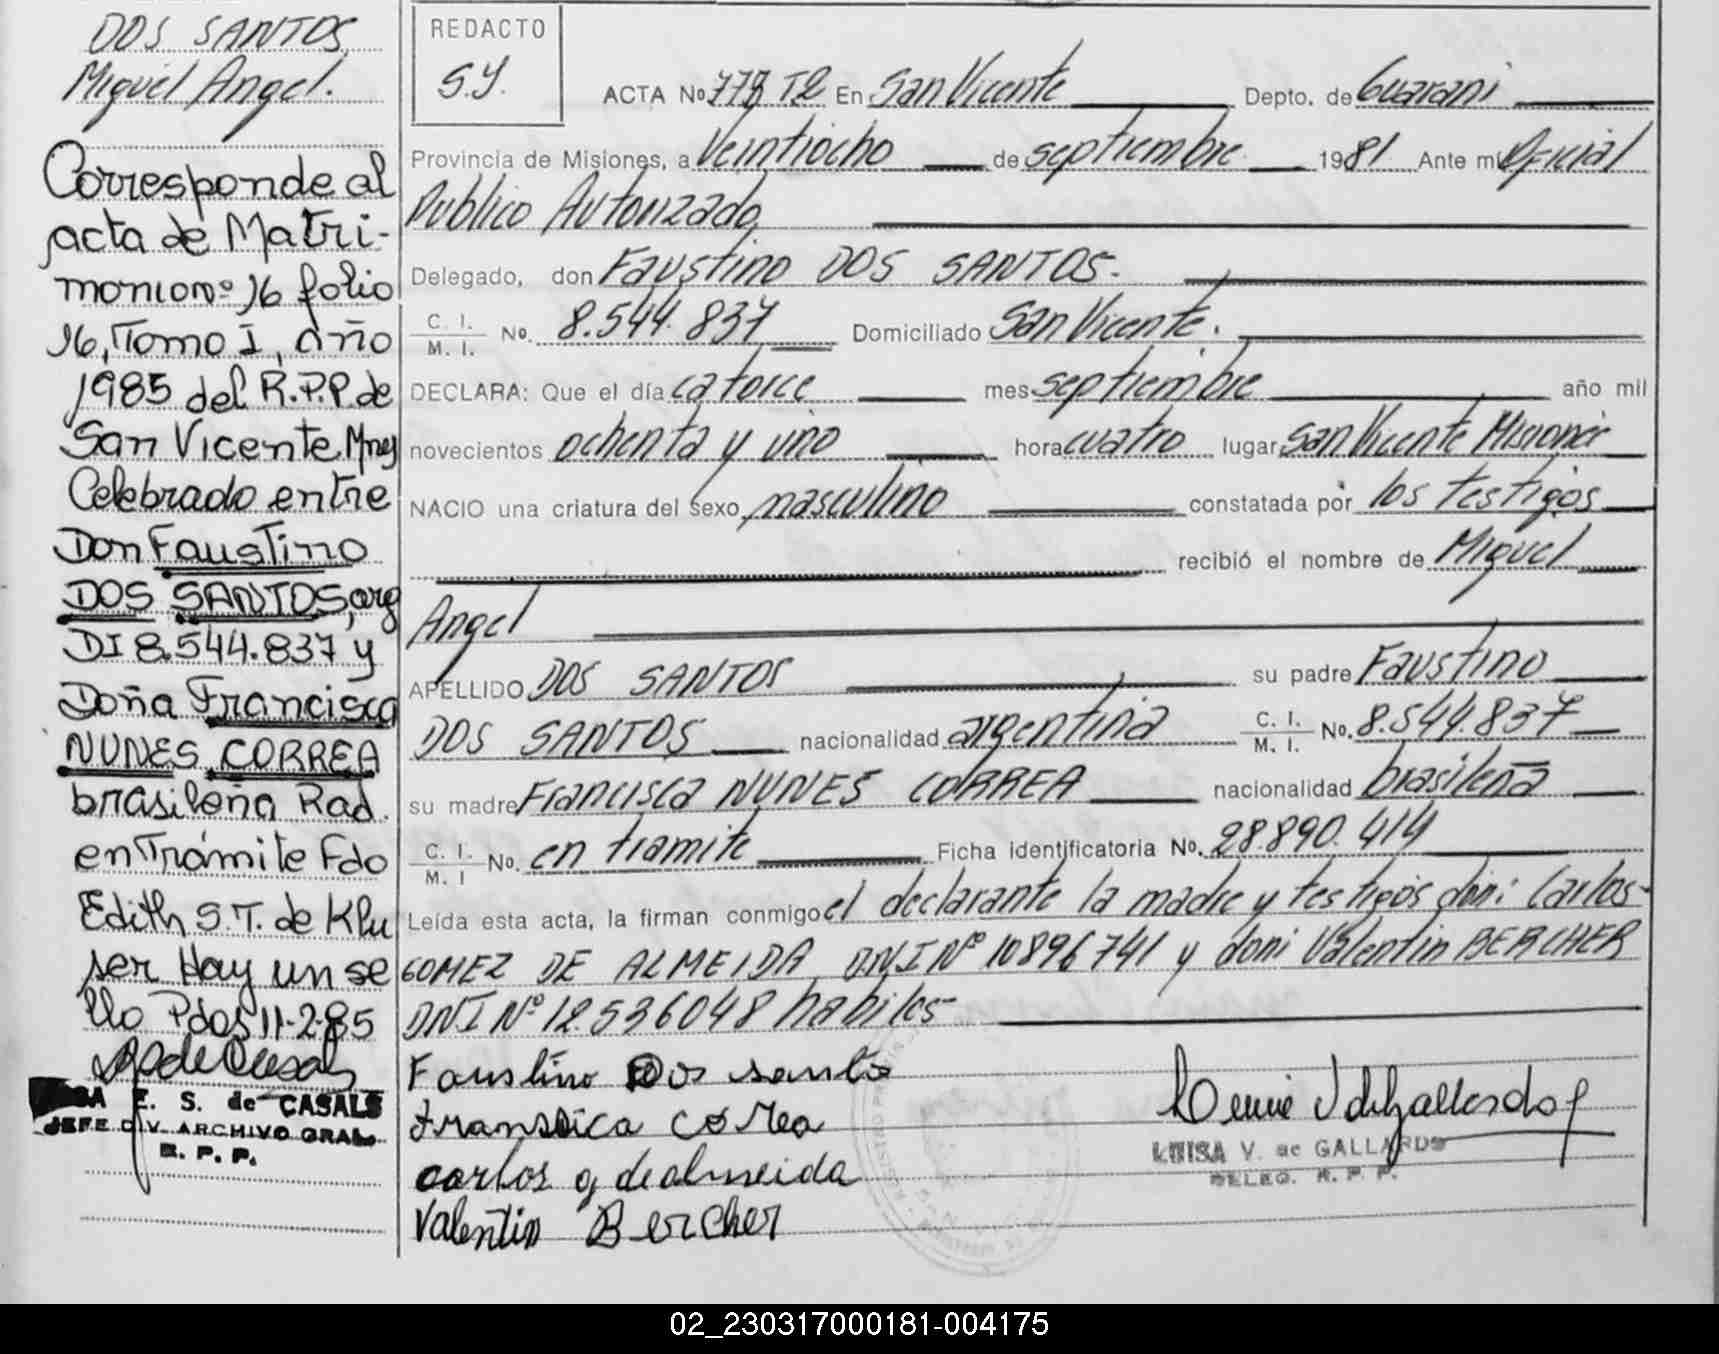 DOS SANTOS
Miguel Angel.
Corresponde al
acta de Matri-
monio nº 16 folio
16, Tomo I, año
1985 del R.P.P. de
San Vicente, Mnes
Celebrado entre
Don Faustino
DOS SANTOS, arg
DI 8.544.837 y
Doña Francisca
NUNES CORREA
brasileña Rad.
en Trámite Fdo
Edith S.T. de Klu
ser Hay un se
llo Pdas 11-2-85
E. S. de CASALS
JEFE DIV. ARCHIVO GRAL.
R. P. P.
REDACTO
S.Y.
ACTA No 779 T2 En San Vicente Depto. de Guarani
Provincia de Misiones, a Veintiocho de septiembre 1981 Ante mi Oficial
Publico Autorizado
Delegado, don Faustino DOS SANTOS.
C. I. / M. I. No. 8.544.837 Domiciliado San Vicente.
DECLARA: Que el día catorce mes septiembre año mil
novecientos ochenta y uno hora cuatro lugar San Vicente Misiones
NACIO una criatura del sexo masculino constatada por los testigos
recibió el nombre de Miguel
Angel
APELLIDO DOS SANTOS su padre Faustino
DOS SANTOS nacionalidad argentina C. I. / M. I. No. 8.544.837
su madre Francisca NUNES CORREA nacionalidad brasileña
C. I. / M. I No. en tramite Ficha identificatoria No. 28.890.414
Leída esta acta, la firman conmigo el declarante la madre y testigos don: Carlos
GOMEZ DE ALMEIDA DNI Nº 10896741 y don: Valentin BERCHER
DNI Nº 12.536048 habiles
Faustino Dos santos
Fransisca Correa
carlos g de almeida
Valentin Bercher
LUISA V. de GALLARDO
DELEG. R. P. P.
02_230317000181-004175